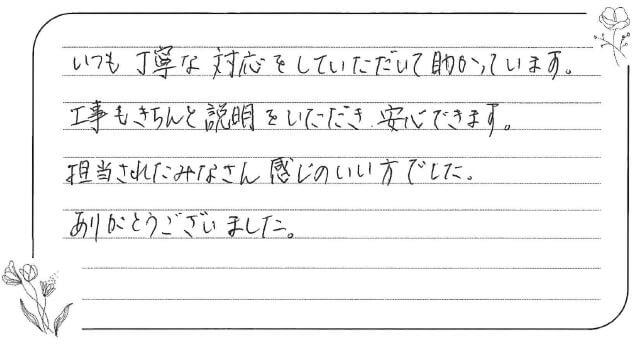 いつも丁寧な対応をしていただいて助かっています。
工事もきちんと説明をいただき、安心できます。
担当されたみなさん感じのいい方でした。
ありがとうございました。